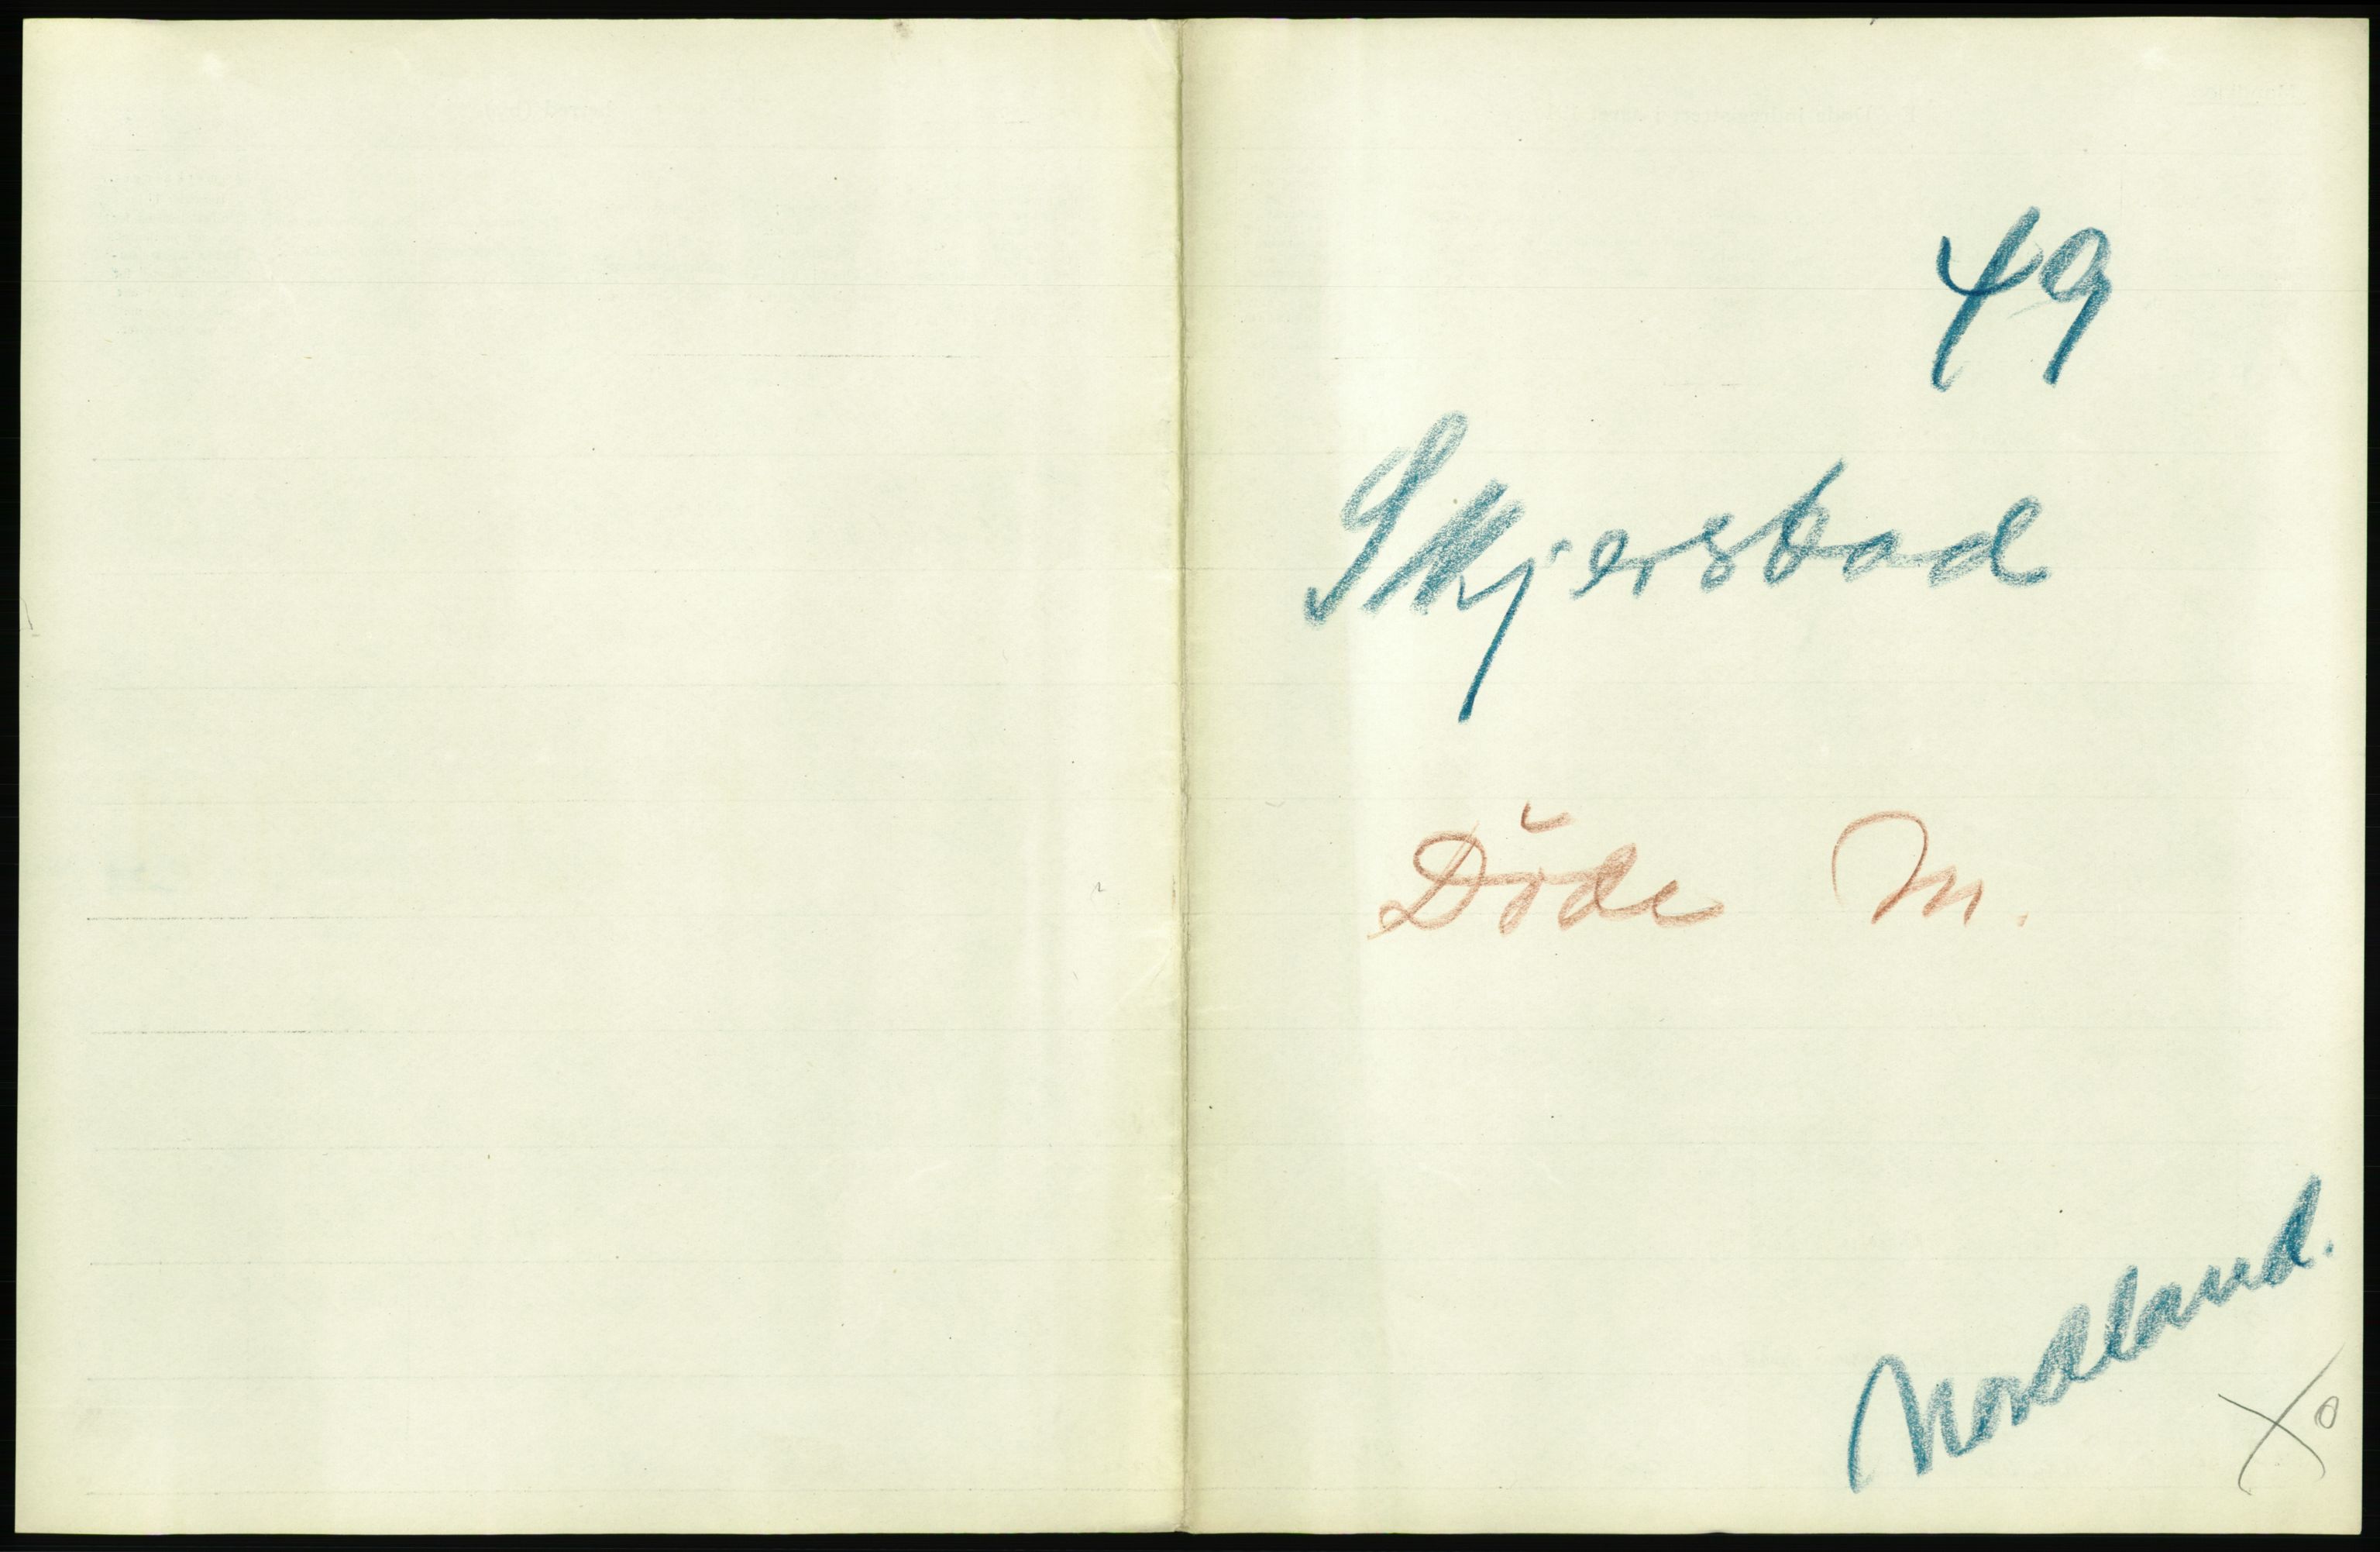 49
Skjerstad
Döde M.
Nordland.
X o